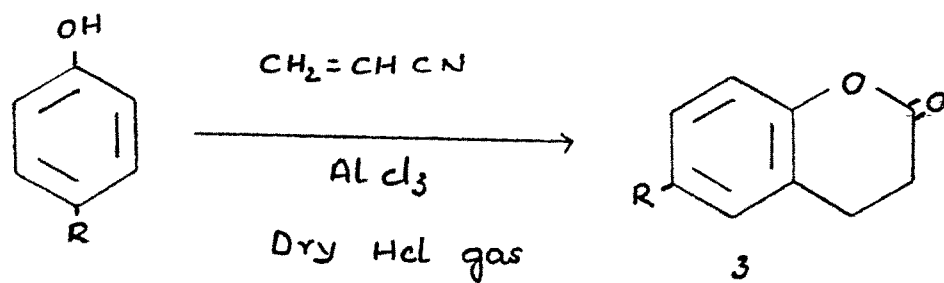 OH
R
CH₂=CH CN
Al cl₃
Dry Hcl gas
O
O
R
3